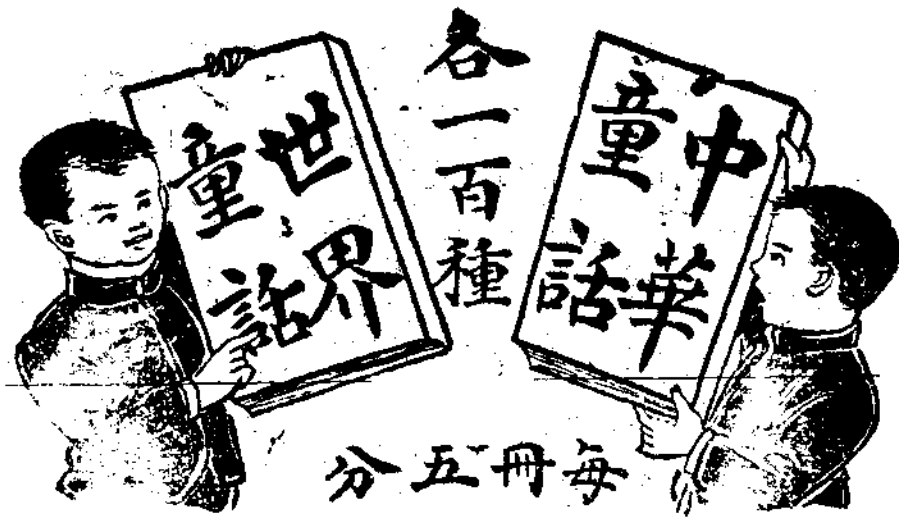 中華
童話
各一百種
世界
童話
每冊五分